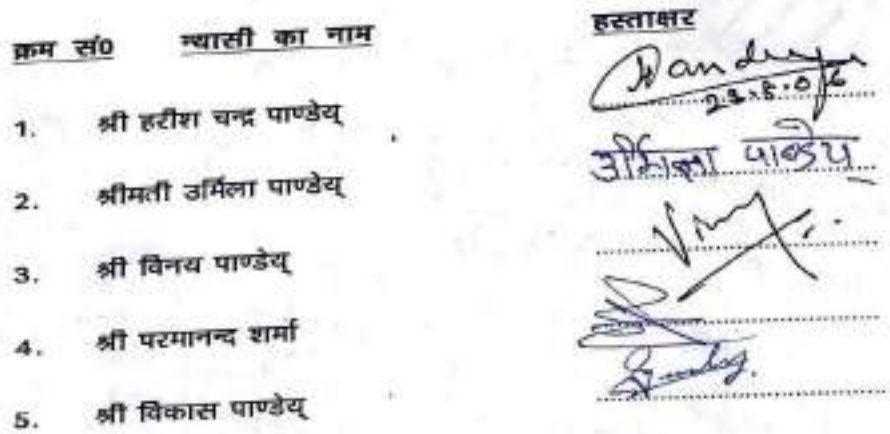 क्रम सं0 न्यासी का नाम हस्ताक्षर
1. श्री हरीश चन्द्र पाण्डेय् Pandeya
23.5.06
2. श्रीमती उर्मिला पाण्डेय् उर्मिला पाण्डेय
3. श्री विनय पाण्डेय्
4. श्री परमानन्द शर्मा
5. श्री विकास पाण्डेय्